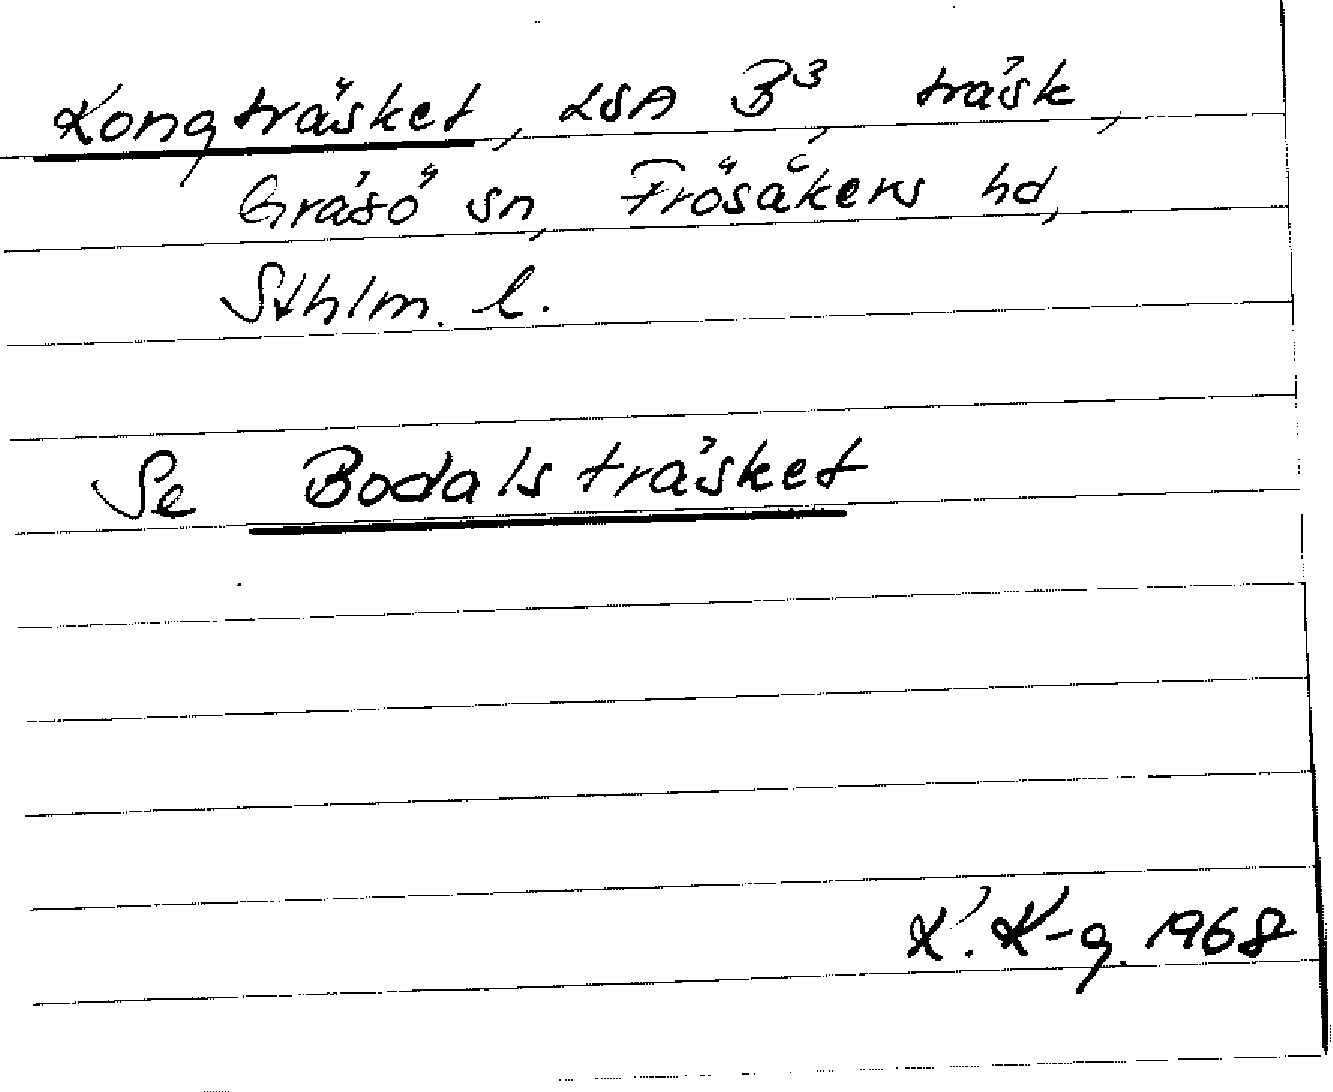 Kongträsket, LSA B³, träsk,
Gräsö sn, Frösåkers hd,
Sthlm. l.
Se Bodalsträsket
K. K-g. 1968